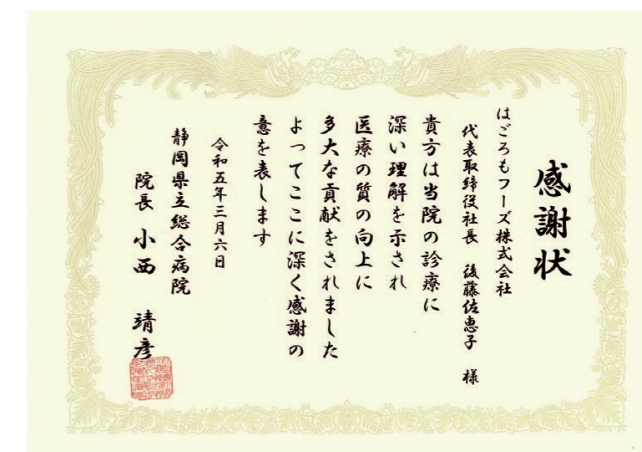 感謝状
はごろもフーズ株式会社
代表取締役社長 後藤佐恵子 様
貴方は当院の診療に
深い理解を示され
医療の質の向上に
多大な貢献をされました
よってここに深く感謝の
意を表します
令和五年三月六日
静岡県立総合病院
院長 小西 靖彦